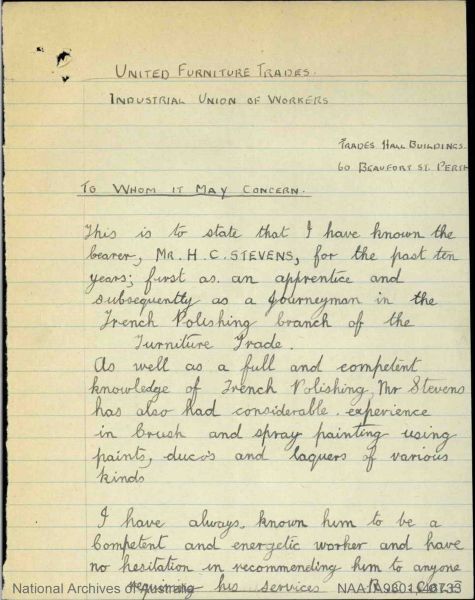 UNITED FURNITURE TRADES.
INDUSTRIAL UNION OF WORKERS
TRADES HALL BUILDINGS.
60 BEAUFORT ST. PERTH
TO WHOM IT MAY CONCERN.
This is to state that I have known the
bearer, MR. H. C. STEVENS, for the past ten
years; first as an apprentice and
subsequently as a journeyman in the
French Polishing branch of the
Furniture Trade.
As well as a full and competent
knowledge of French Polishing, Mr Stevens
has also had considerable experience
in brush and spray painting using
paints, duco's and laquers of various
kinds
I have always, known him to be a
Competent and energetic worker and have
no hesitation in recommending him to anyone
requiring his services
National Archives of Australia